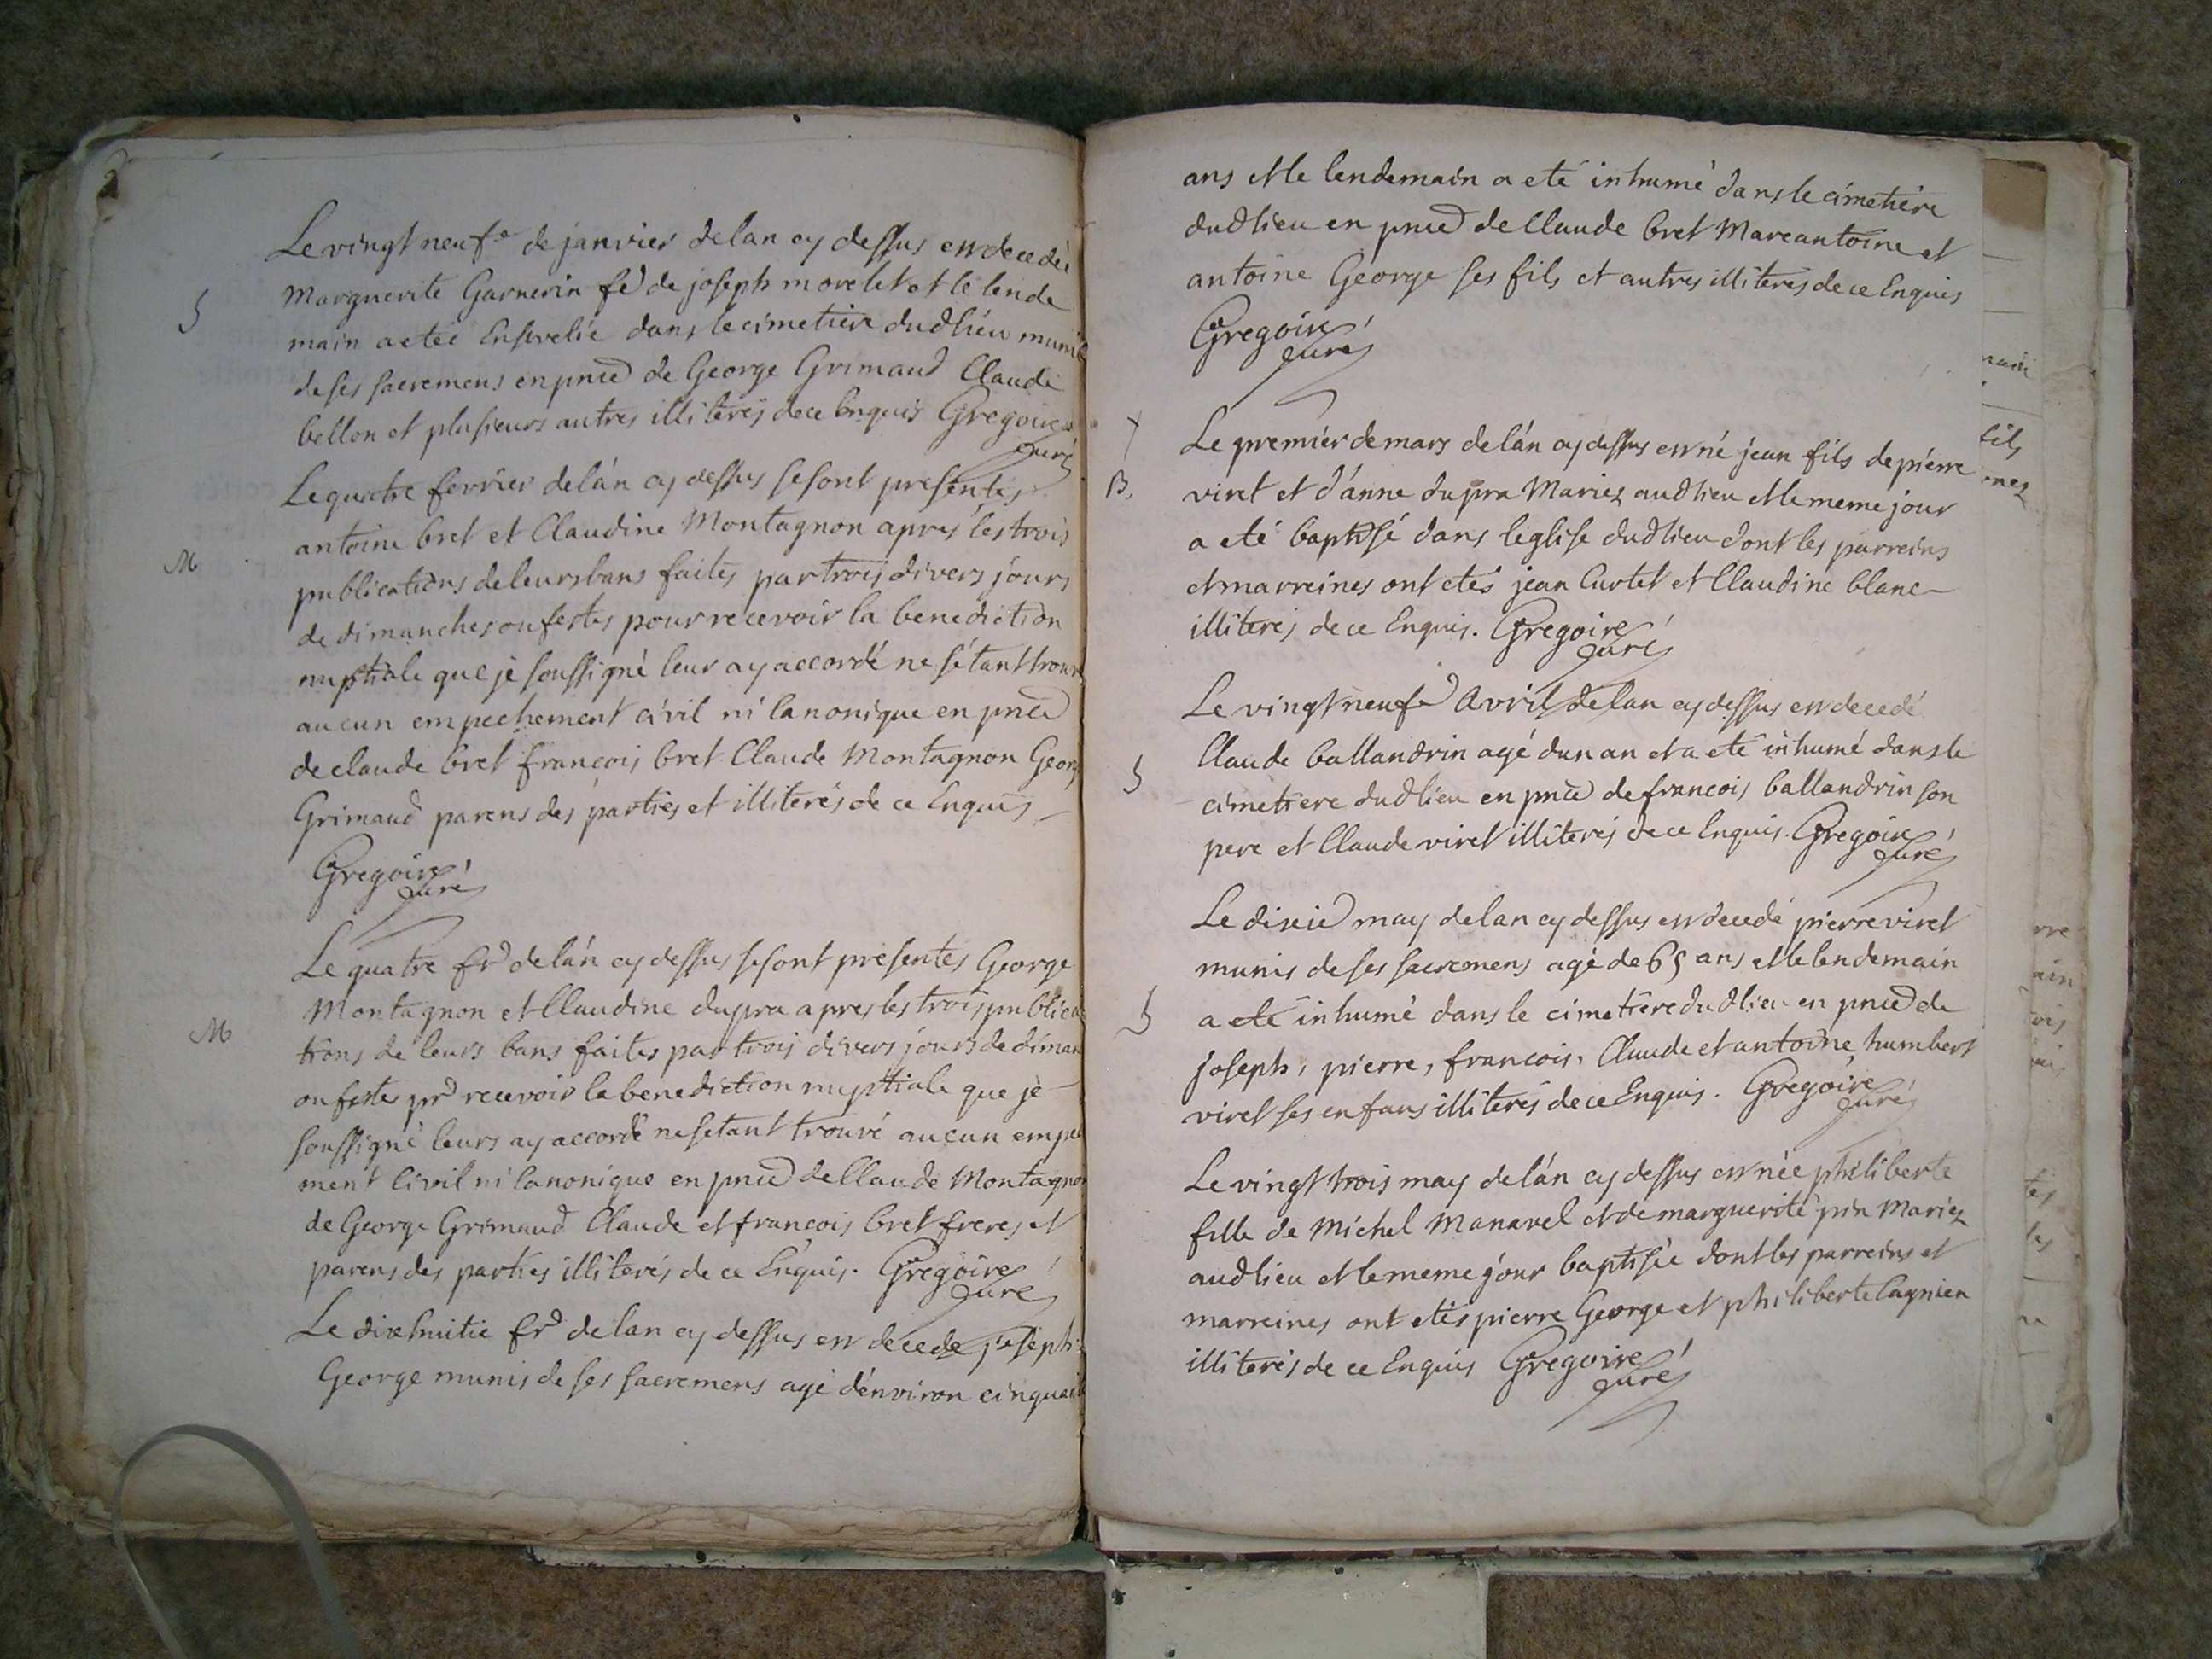 Le vingt neufe de janvier de lan cy dessus est decedée
S
Marguerite Garnerin fe de joseph morelet et le lende
main a eteé Ensevelie dans le cimetiere dud lieu munie
de ses sacremens en pnce de George Grimaud Claude
bellon et plusieurs autres illiterés de ce Enquis Gregoire
Curé
Le quatre fevrier de lán cy dessus se sont presentés
antoine bret et Claudine Montagnon apres les trois
M
publications de leurs bans faites par trois divers jours
de dimanches ou festes pour recevoir la benediction
nuptiale que je soussigné leur ay accordé ne sétant trouvé
aucun empechement civil ni Canonique en pnce
de claude bret francois bret Claude Montagnon George
Grimaud parens des parties et illiterés de ce Enquis
Gregoire
Curé
Le quatre fr de lán cy dessus se sont presentés George
Montagnon et Claudine dupra apres les trois publica
M
tions de leurs bans faites par trois divers jours de diman
ou festes pr recevoir la benediction nuptiale que je
soussigné leurs ay accordé ne setant trouvé aucun empe
ment Civil ni Canonique en pnce de Claude Montagnon
de George Grimaud Claude et francois bret freres et
parens des parties illiterés de ce Enquis. Gregoire
Curé
Le dixhuitie fr de lan cy dessus est decede joseph
George munis de ses sacremens agé dénviron cinquante
ans et le lendemain a eté inhumé dans le cimetiere
dud lieu en pnce de Claude bret Marcantoine et
antoine George ses fils et autres illiterés de ce Enquis
Gregoire
Curé
Le premier de mars de lán cy dessus est né jean fils de pierre
B.
viret et d'anne dupra Mariez aud lieu et le meme jour
a eté baptisé dans leglise dud lieu dont les parreins
et marreines ont etés jean Curtet et Claudine blanc
illiterés de ce Enquis. Gregoire
Curé
Le vingt neufe Avril de lan cy dessus est decedé
Claude ballandrin agé dun an et a eté inhumé dans le
S
cimetiere dud lieu en pnce de francois ballandrin son
pere et Claude viret illiterés de ce Enquis. Gregoire
Curé
Le dixie may de lan cy dessus est decedé pierre viret
munis de ses sacremens agé de 65 ans et le lendemain
S
a eté inhumé dans le cimetiere dud lieu en pnce de
joseph, pierre, francois, Claude et antoine, humbert
viret ses enfans illiterés de ce Enquis. Gregoire
Curé
Le vingt trois may de lán cy dessus est née philiberte
fille de Michel Manavel et de marguerite pin Mariez
aud lieu et le meme jour baptisée dont les parreins et
marreines ont etés pierre George et philiberte Cagnien
illiterés de ce Enquis Gregoire
Curé